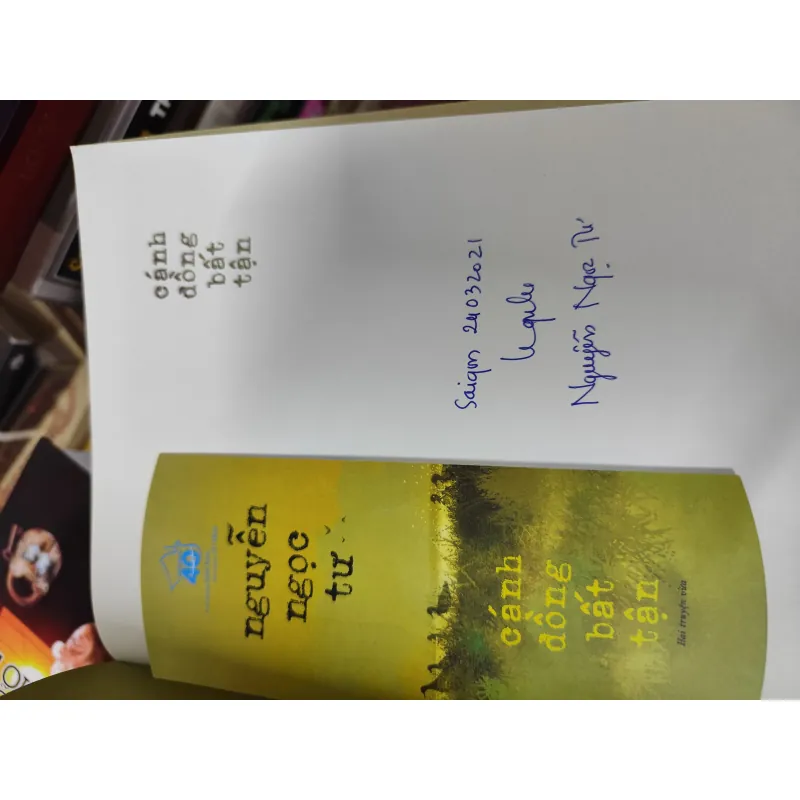 cánh
đồng
bất
tận
Saigon 24032021
Nguyễn Ngọc Tư
40
nguyễn
ngọc
tư
cánh
đồng
bất
tận
Hai truyện vừa